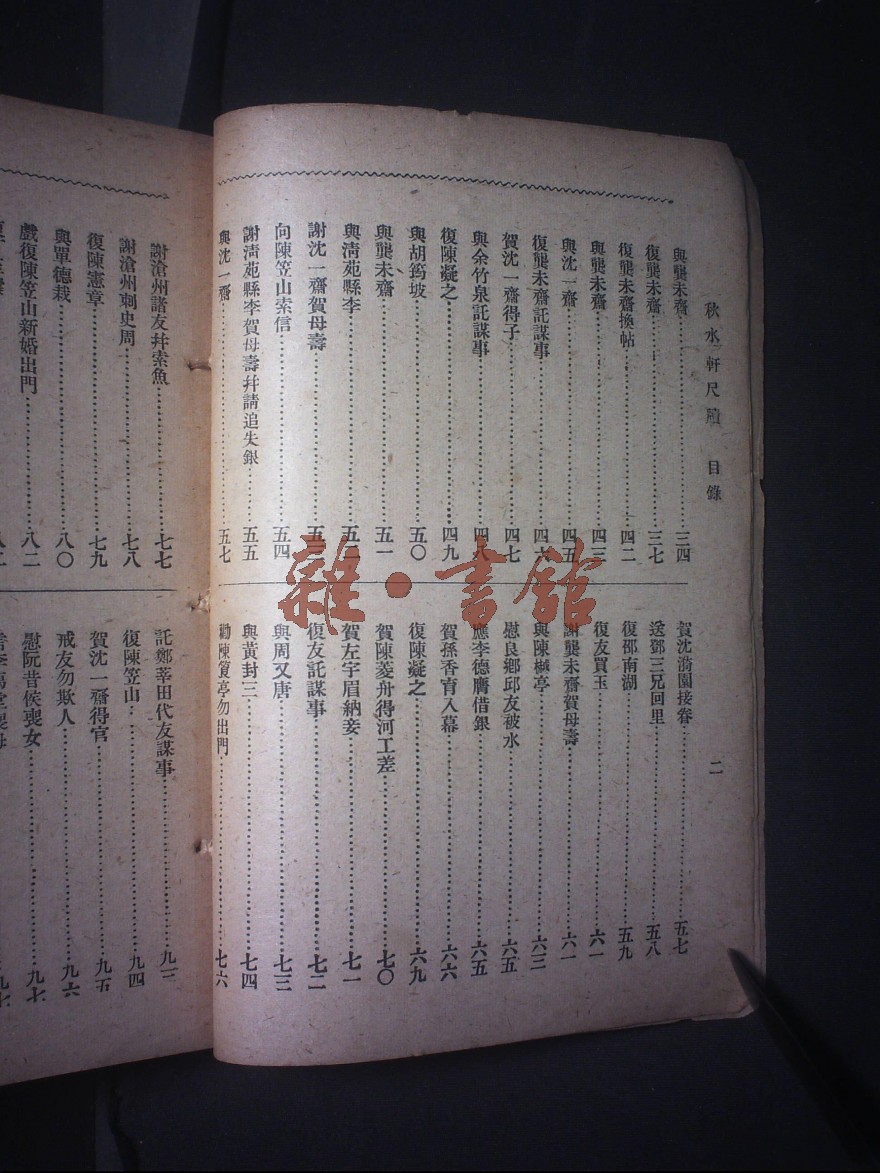 秋水軒尺牘 目錄 二
與龔未齋 三四
復龔未齋 三七
復龔未齋換帖 四二
與龔未齋 四三
與沈一齋 四五
復龔未齋託謀事 四六
賀沈一齋得子 四七
與余竹泉託謀事 四八
復陳凝之 四九
與胡筠坡 五〇
與龔未齋 五一
與淸苑縣李 五二
謝沈一齋賀母壽 五三
向陳笠山索信 五四
謝淸苑縣李賀母壽幷請追失銀 五五
與沈一齋 五七
賀沈漪園接眷 五七
送鄧三兄回里 五八
復邵南湖 五九
復友買玉 六一
謝龔未齋賀母壽 六一
與陳樾亭 六三
慰良鄉邱友被水 六五
應李德膺借銀 六五
賀孫香育入幕 六六
復陳凝之 六九
賀陳菱舟得河工差 七〇
賀左宇眉納妾 七一
復友託謀事 七二
與周又唐 七三
與黃封三 七四
勸陳篔亭勿出門 七六
謝滄州諸友幷索魚 七七
謝滄州刺史周 七八
復陳憲章 七九
與單德栽 八〇
戲復陳笠山新婚出門 八二
託鄭莘田代友謀事 九三
復陳笠山 九四
賀沈一齋得官 九五
戒友勿欺人 九六
慰阮昔侯喪女 九七
雜·書館